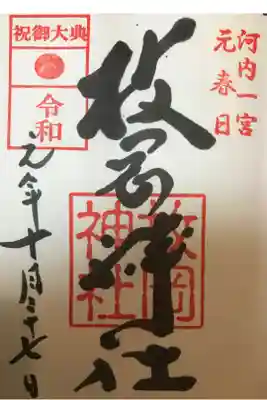 河内一宮
元春日
枚岡神社
枚岡
神社
祝御大典
令和
元年十月二十七日